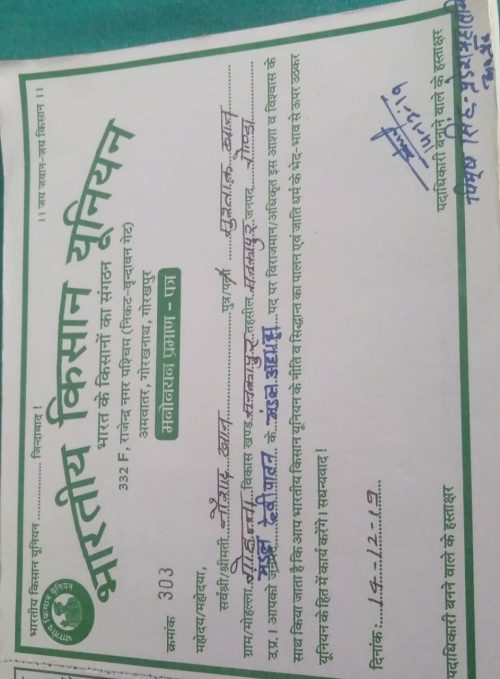 भारतीय किसान यूनियन .......... जिन्दाबाद !
।। जय जवान-जय किसान ।।
भारतीय किसान यूनियन
भारतीय किसान यूनियन
भारत के किसानों का संगठन
332 F, राजेन्द्र नगर पश्चिम (निकट-वृन्दावन गेट)
जमवातर, गोरखनाथ, गोरखपुर
क्रमांक 303
मनोनयन प्रमाण - पत्र
महोदय/महोदया,
सर्वश्री/श्रीमती नौशाद खान पुत्र/पत्नी मुश्ताक खान
ग्राम/मोहल्ला विकास खण्ड मनकापुर तहसील मनकापुर जनपद गोण्डा
उ.प्र. । आपको मंडल देवीपाटन के मंडल अध्यक्ष पद पर विराजमान/अधिकृत इस आशा व विश्वास के
साथ किया जाता है कि आप भारतीय किसान यूनियन के नीति व सिद्धान्त का पालन एवं जाति धर्म के भेद-भाव से ऊपर उठकर
यूनियन के हित में कार्य करेंगे। सधन्यवाद !
दिनांक: 14-12-19
14-12-19
पदाधिकारी बनने वाले के हस्ताक्षर
पदाधिकारी बनाने वाले के हस्ताक्षर
सिंह-